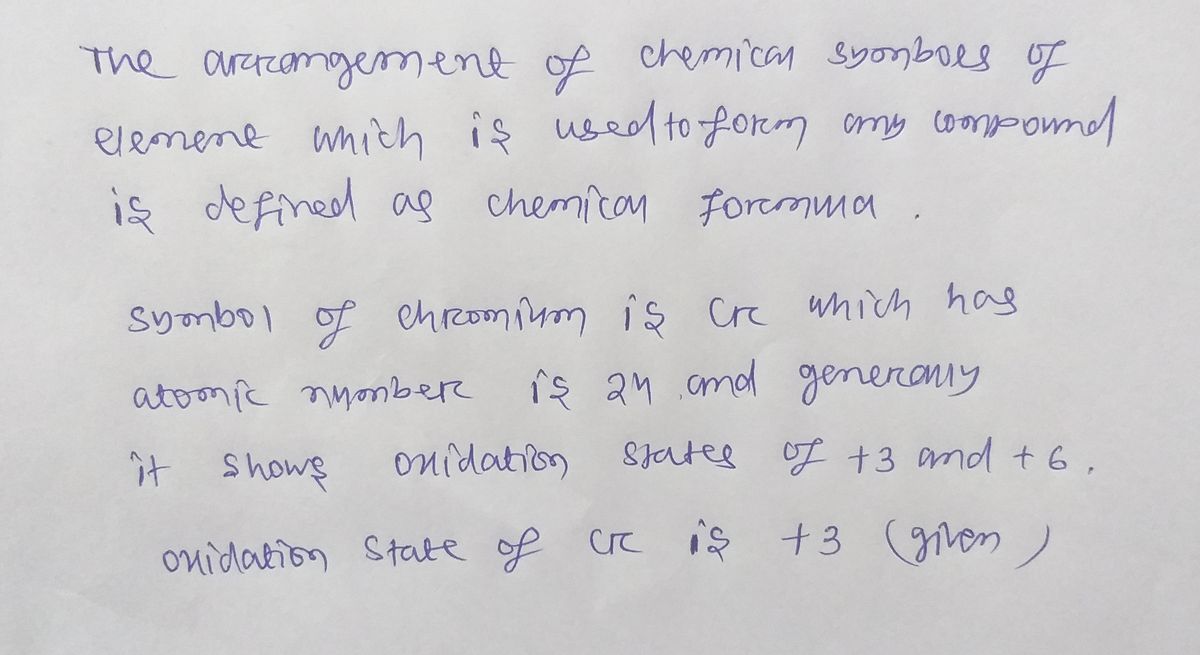 The arrangement of chemical symboles of
element which is used to form any compound
is defined as chemical formula.
symbol of chromium is Cr which has
atomic number is 24 and generally
it shows oxidation states of +3 and +6.
oxidation state of cr is +3 (given)